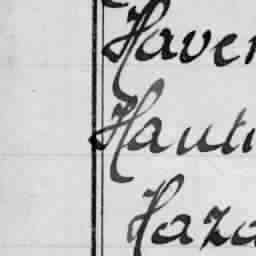 Haver
Hauti
Haza